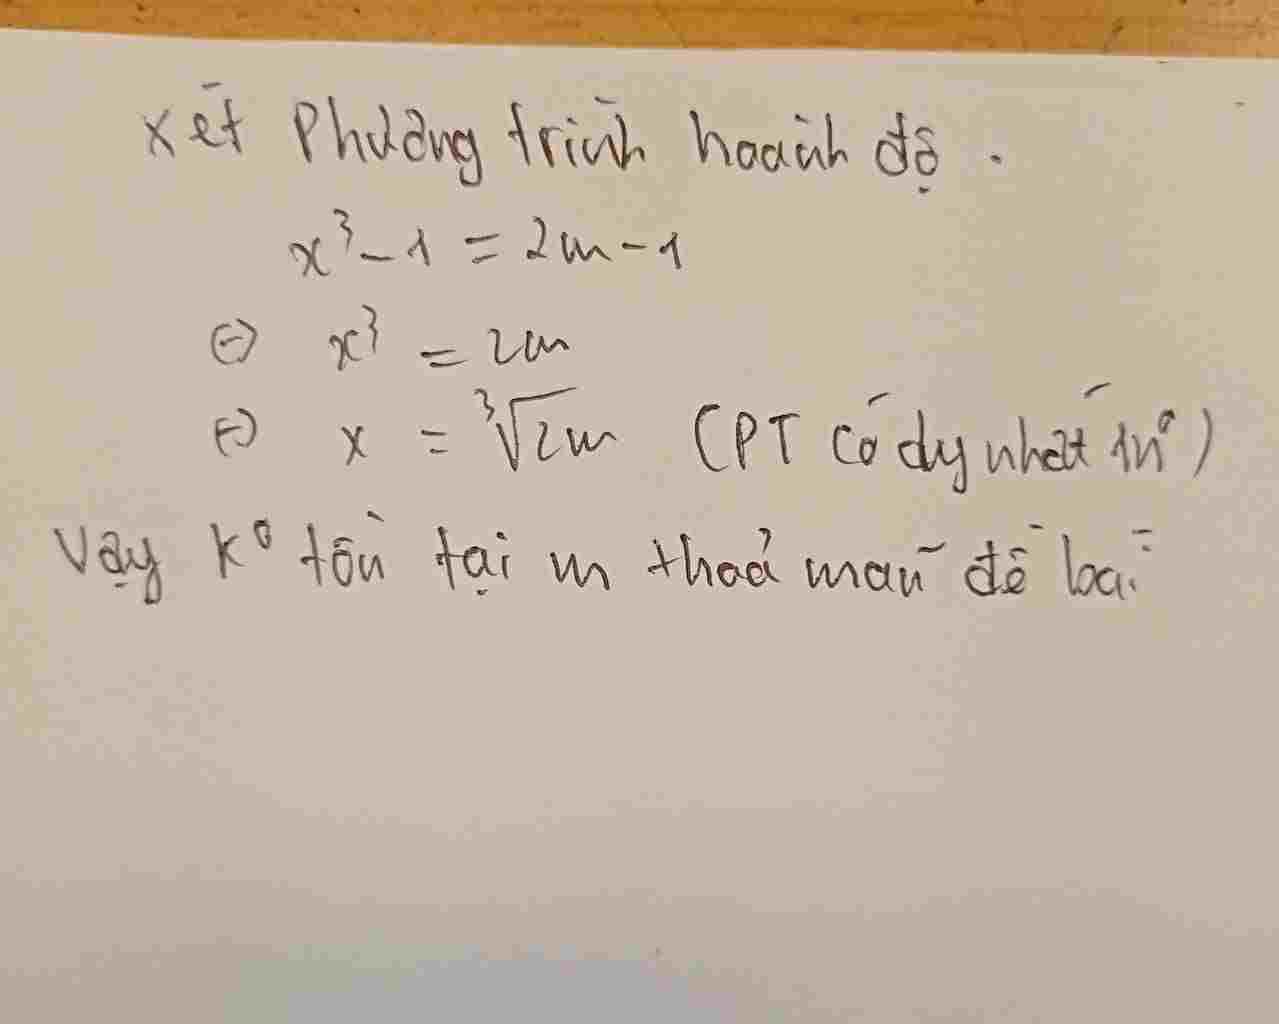 Xét Phương trình hoành độ.
x³ - 1 = 2m - 1
⇔ x³ = 2m
⇔ x = ∛2m (PT có dy nhất 1n⁰)
Vậy k⁰ tồn tại m thoả mãn đề bài